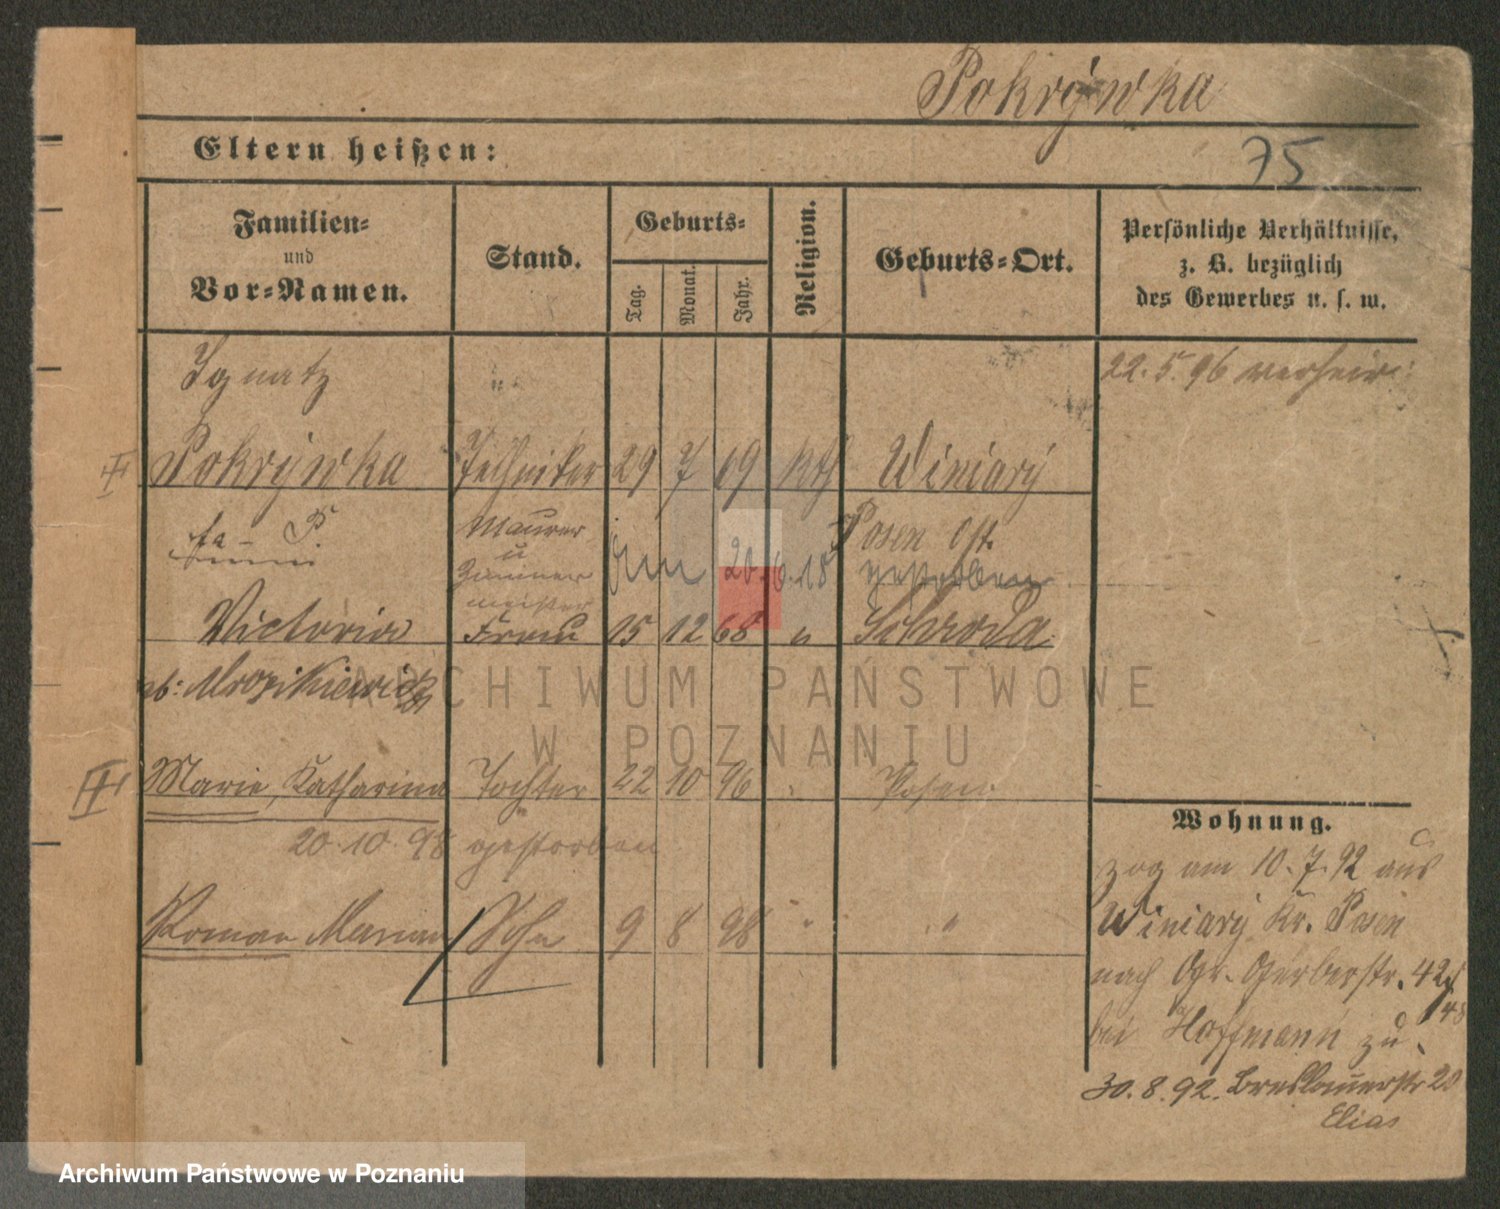 Pokrywka
75
Eltern heißen:
Familien=
und
Vor=Namen.
Stand.
Geburts=
Tag.
Monat.
Jahr.
Religion.
Geburts=Ort.
Persönliche Verhältnisse,
z. B. bezüglich
des Gewerbes u. s. w.
Ignatz
22. 5. 96 verheir:
Pokrywka Techniker 29 7 69 Kth Winiary
P. Maurer
u
Zimmer
meister
den 20. 6. 18 Posen Ost.
gestorben
Victoria Frau 15 12 68 " Schroda
geb: Mrozikiewicz
Marie, Katharina Tochter 22 10 96 " Posen
20. 10. 98 gestorben
Roman Marian Sohn 9 8 98 " "
Wohnung.
zog am 10. 7. 92 aus
Winiary Kr. Posen
nach Gr. Gerberstr. 42
bei Hoffmann zu.
30. 8. 92. Breslauerstr 20
Elias
ARCHIWUM PAŃSTWOWE
W POZNANIU
Archiwum Państwowe w Poznaniu